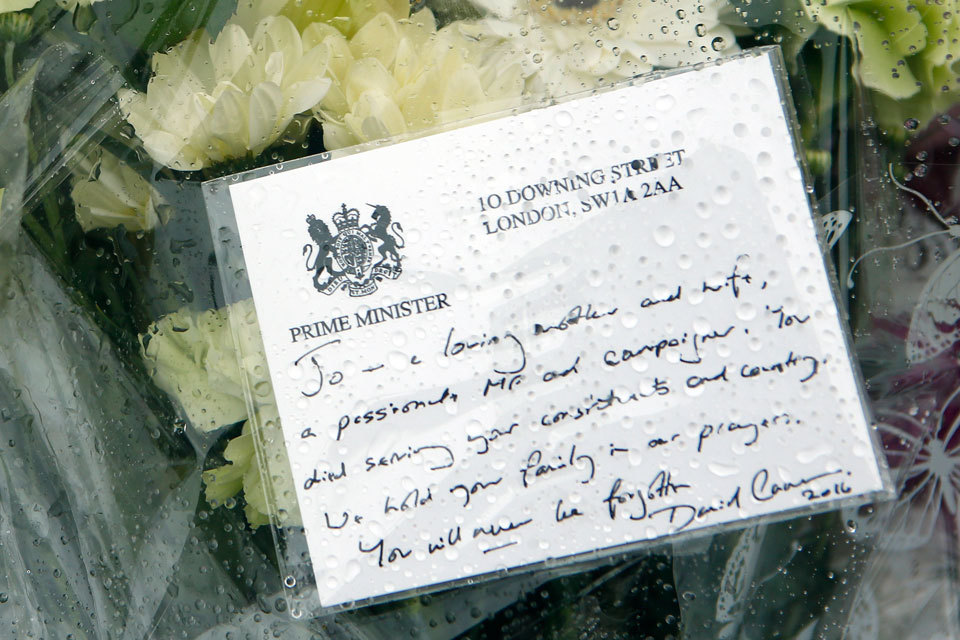 10 DOWNING STREET
LONDON, SW1A 2AA
PRIME MINISTER
To a loving mother and wife,
a passionate MP and campaigner. You
died serving your constituents and country.
We hold your family in our prayers.
You will never be forgotten
David Cameron
2016